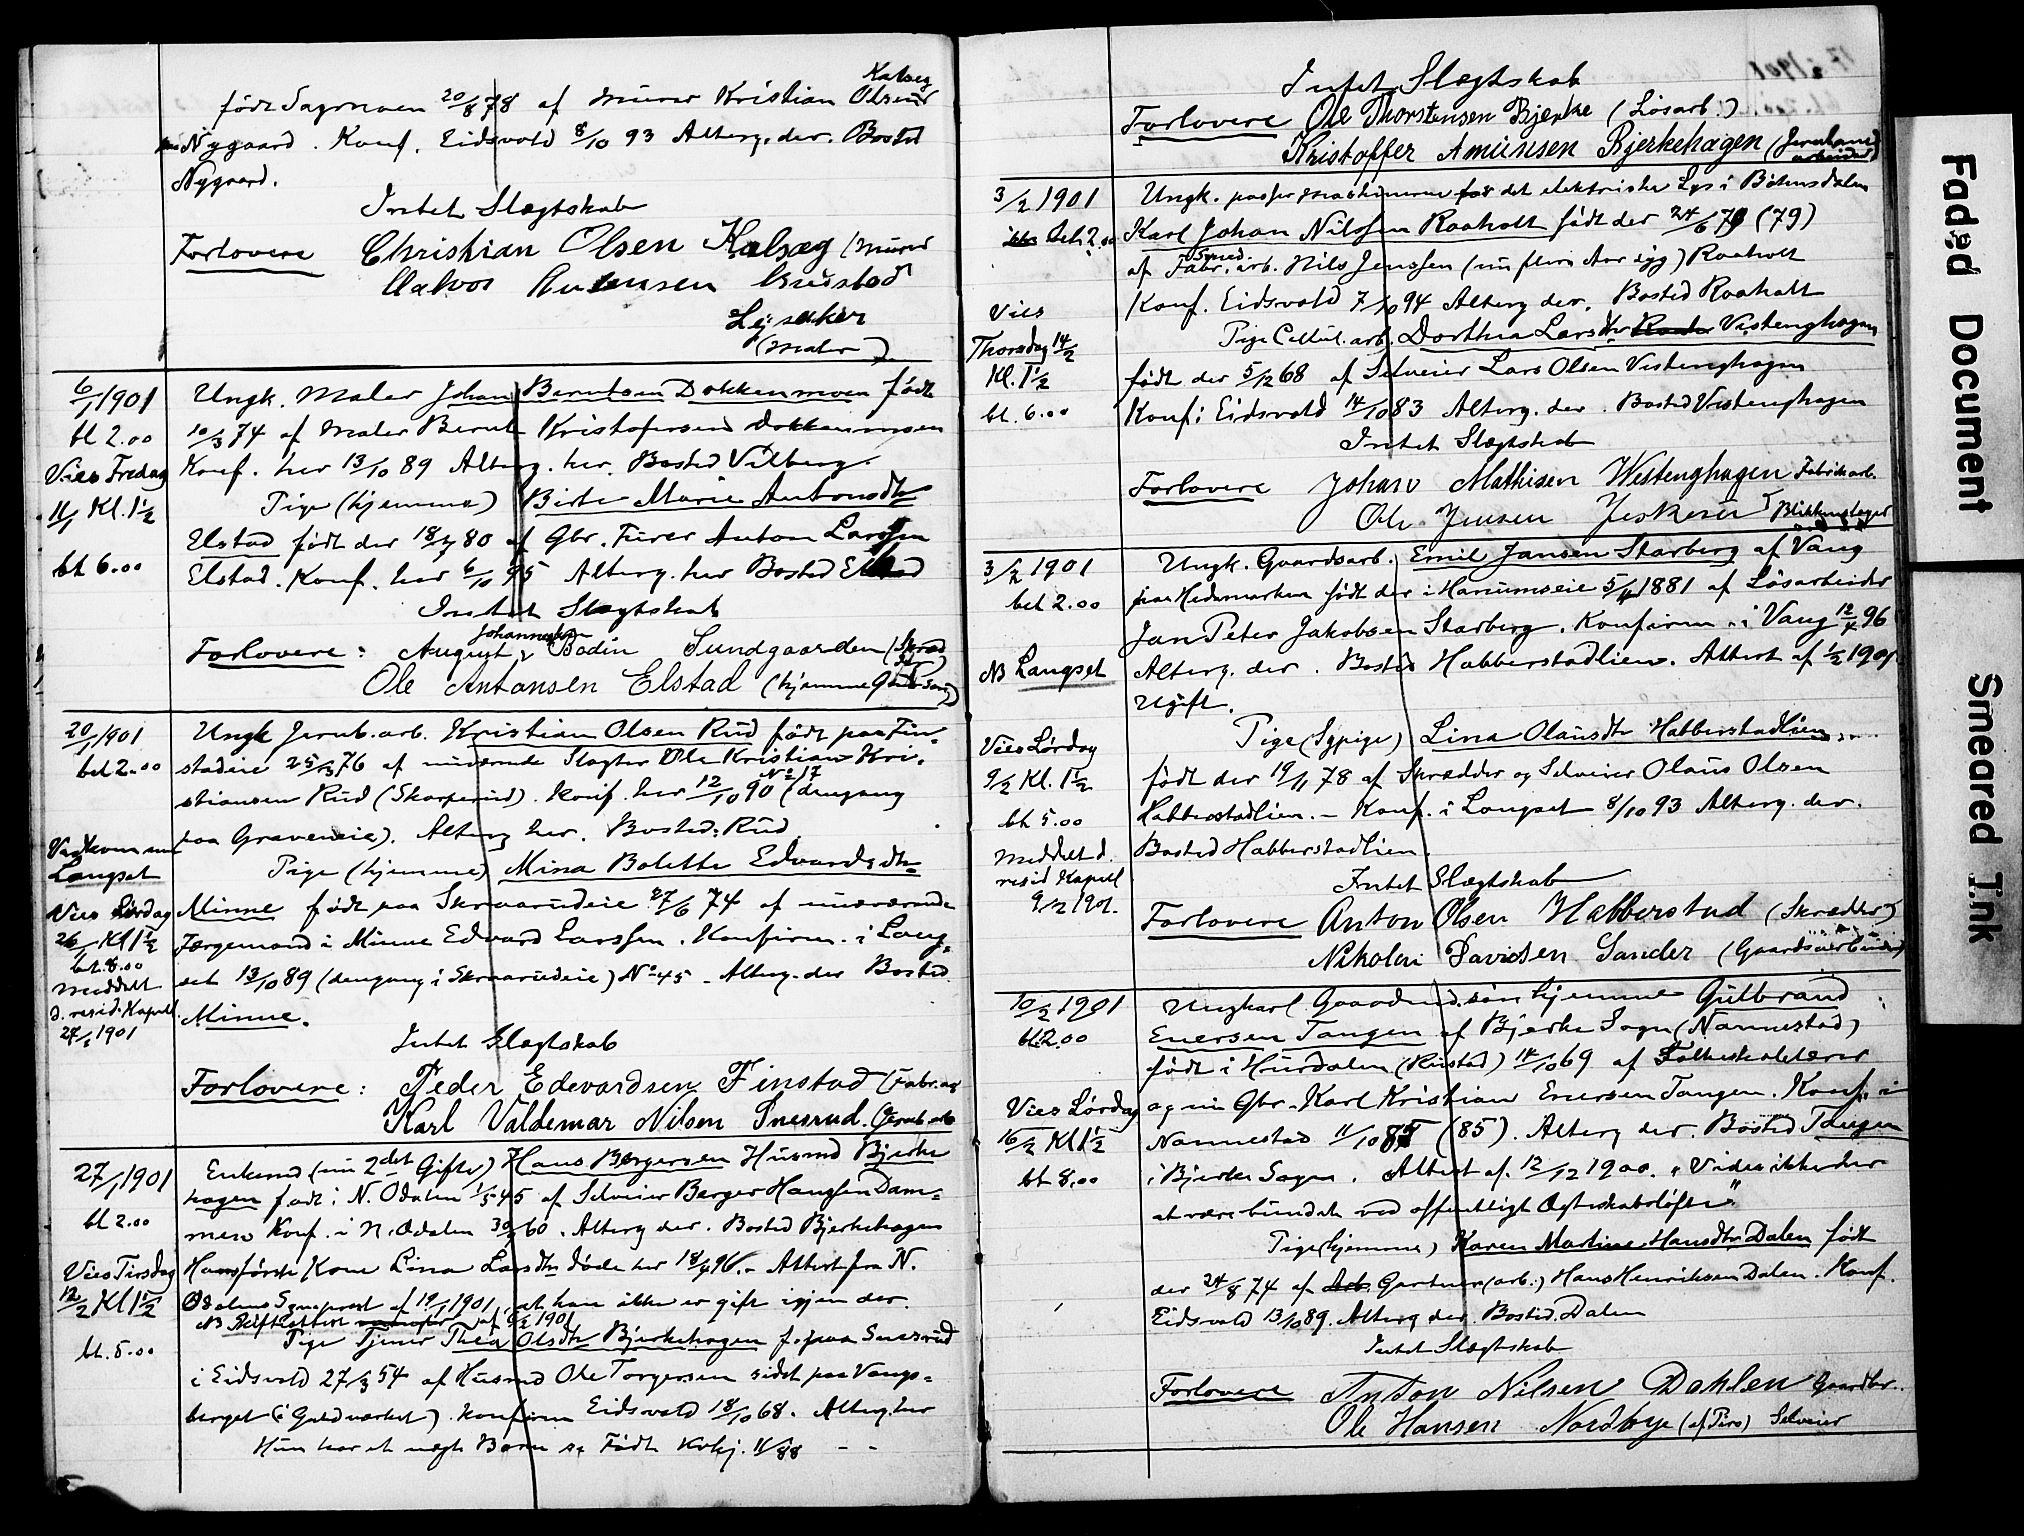 Kalveg
født Sagmoen 20/8 78 af Murer Kristian Olsen
Nygaard. Konf. Eidsvold 8/10 93 Alterg. der. Bosted
Nygaard.
Intet Slægtskab
Forlovere Christian Olsen Kalvæg (Murer
Antonsen
(Maler)
6/1 1901
bt 2.00
Vies Fredag
11/1 Kl. 1½
bt 6.00
Ungk. Maler Johan Berntsen Dokkenmoen født
10/3 74 af Maler Bernt Kristofersen Dokkenmoen
Konf. her 13/10 89 Alterg. her. Bosted Vilberg.
Pige (hjemme) Birte Marie Antonsdtr
Elstad født der 18/7 80 af Gbr. Furer Anton Larssen
Elstad. Konf. her 6/10 95 Alterg. her Bosted Elstad
Intet Slægtskab
Johannessen
Forlovere: August Bodin Sundgaarden (Skræd
Ole Antonsen Elstad (hjemme Gaardsarb)
20/1 1901
bet 2.00
Langset
Vies Lørdag
26/1 Kl 1½
bt. 8.00
Meddelt
d. resid. Kapell.
27/1 1901
Ungk Jernb. arb. Kristian Olsen Rud født paa Fin-
stadeie 25/3 76 af nuværende Slagter Ole Kristian Kri-
No 17
stiansen Rud (Skarperud). Konf. her 12/10 90 (dengang
paa Graveneie). Alterg her. Bosted: Rud
Pige (hjemme) Mina Bolette Edvardsdtr
Minne født paa Skraarudeie 27/6 74 af nuværende
Færgemand i Minne Edvard Larssen. Konfirm. i Lang-
set 13/10 89 (dengang i Skraarudeie) No 45 - Alterg. der Bosted
Minne.
Intet Slægtskab
Forlovere: Peder Edevardsen Finstad (Fabr. ar
Karl Valdemar Nilsen Snesrud. (Jernb. arb
27/1 1901
bt 2.00
Vies Tirsdag
12/2 Kl 1½
bt. 5.00
Enkemd (nu 2det Gifte) Hans Bergersen Husmd Bjerke
hagen født i N. Odalen 1/5 45 af Selveier Berger Hanssen Dam-
men Konf. i N. Odalen 30/9 60. Alterg der. Bosted Bjerkehagen
Hans første Kone Lina Larsdtr døde her 18/4 96. - Attest fra N.
Odalens Sogneprest af 19/1 1901, at han ikke er gift igjen der.
NB Skifteattest af 6/2 1901
Pige Tjener Thea Olsdtr Bjerkehagen f. paa Snesrud
i Eidsvold 27/3 54 af Husmd Ole Torgersen sidst paa Vangs-
berget (i Guldværket). Konfirm Eidsvold 18/10 68. Alterg. her
Hun har et uægte Barn
Intet Slægtskab
Forlovere Ole Thorstensen Bjerke (Løsarb.)
Kristoffer Amundsen Bjerkehagen (Jernbane
arbeider)
3/2 1901
bet. 2.00
Vies
Thorsdag 14/2
Kl. 1½
bt. 6.00
Ungk. passer Maskinerne for det elektriske Lys i Bøhnsdalen
Karl Johan Nilssen Raaholt født der 24/6 79 (79)
Smed.
af Fabr. arb. Nils Jenssen (nu flere Aar syg) Raaholt
Konf. Eidsvold 7/10 94 Alterg der. Bosted Raaholt
Pige Cellul. arb. Dorthea Larsdtr Vestenghagen
født der 5/12 68 af Selveier Lars Olsen Vestenghagen
Konf: Eidsvold 14/10 83 Alterg. der. Bosted Vestenghagen
Intet Slægtskab
Forlovere Johan Mathisen Westenghagen Fabrikarb.
Ole Jensen Blikkenslager
3/2 1901
bet 2.00
NB Langset
Vies Lørdag
9/2 Kl. 1½
bt 5.00
Meddelt d.
resid Kapell
9/2 1901.
Ungk. Gaardsarb. Emil Jansen Starberg af Vang
paa Hedemarken født der i Hanumseie 5/11 1881 af Løsarbeider
Jan Peter Jakobsen Starberg. Konfirm. i Vang 12/4 96
Alterg. der. Bosted Habberstadlien. Attest af 1/2 1901
Ugift.
Pige (Sypige) Lina Olausdtr Habberstadlien
født der 19/11 78 af Skrædder og Selveier Olaus Olsen
Habberstadlien. - Konf. i Langset 8/10 93 Alterg. der.
Bosted Habberstadlien.
Intet Slægtskab
Forlovere Anton Olsen Habberstad (Skrædder)
Nikolai Davidsen Sander (Gaardsarbeider)
10/2 1901
bt. 2.00
Vies Lørdag
16/2 Kl 1½
bt 8.00
Ungkarl Gaardmd. søn hjemme Gulbrand
Enersen Tangen af Bjerke Sogn (Nannestad)
født i Hurdalen (Rustad) 14/10 69 af Folkeskolelærer
og nu Gbr. Karl Kristian Enersen Tangen. Konf. i
Nannestad 11/10 85 (85). Alterg der. Bosted Tangen
i Bjerke Sogn. Attest af 12/12 1900. "Vides ikke her
at være bundet ved offentligt Ægteskabsløfte"
Pige (hjemme) Karen Martine Hansdtr Dalen født
der 24/8 74 af Gartner (arb.) Hans Henriksen Dalen. Konf.
Eidsvold 13/10 89. Alterg der. Bosted. Dalen
Intet Slægtskab
Forlovere Anton Nilsen Dahlen Gaardbr.
Ole Hansen Nordbye (af Piro) Selveier
Faded Document
Smeared Ink